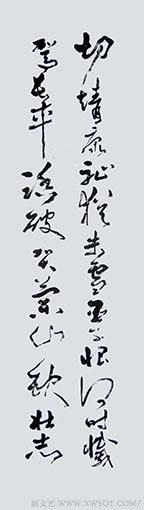 切靖康耻猶未雪臣子恨何时滅
驾长车踏破贺兰山缺壮志
新文艺 WWW.XWYOT.COM